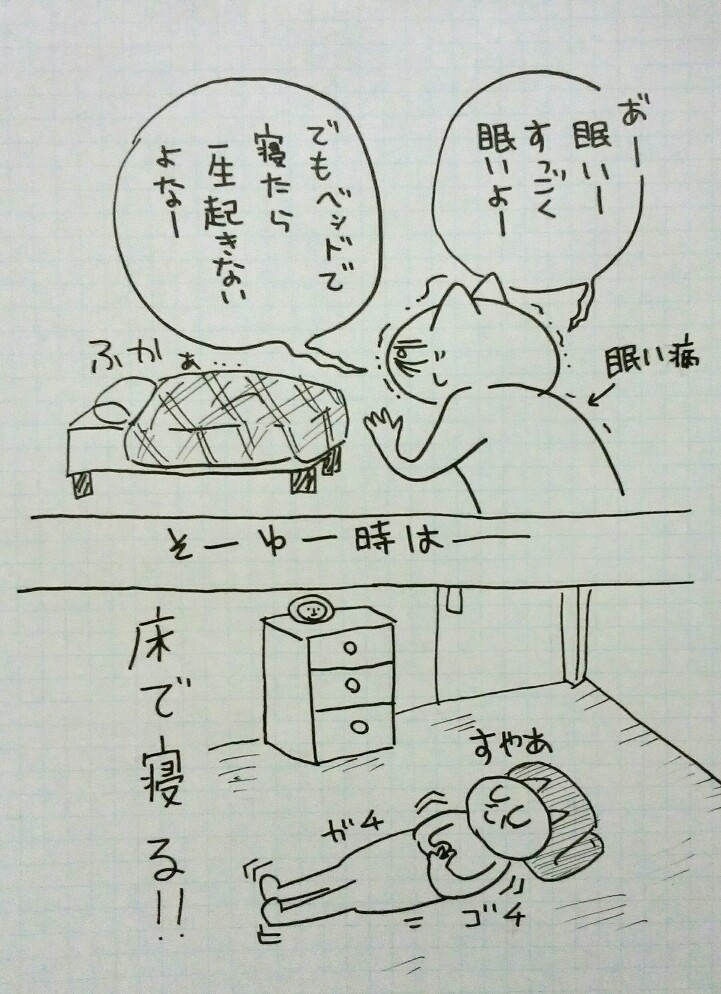 あ゛ー
眠いー
すっごく
眠いよー
でもベッドで
寝たら
一生起きない
よなー
眠い病
ふかぁ…
そーゆー時はー
床で寝る!!
すやあ
ガチ
ゴチ